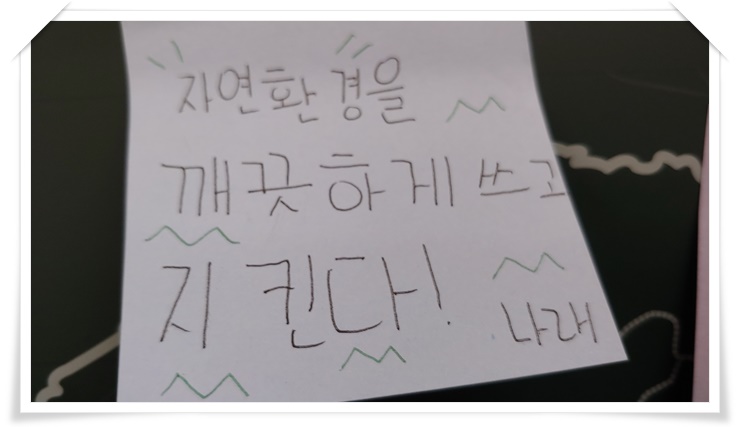 자연환경을
깨끗하게 쓰고
지킨다!
나래